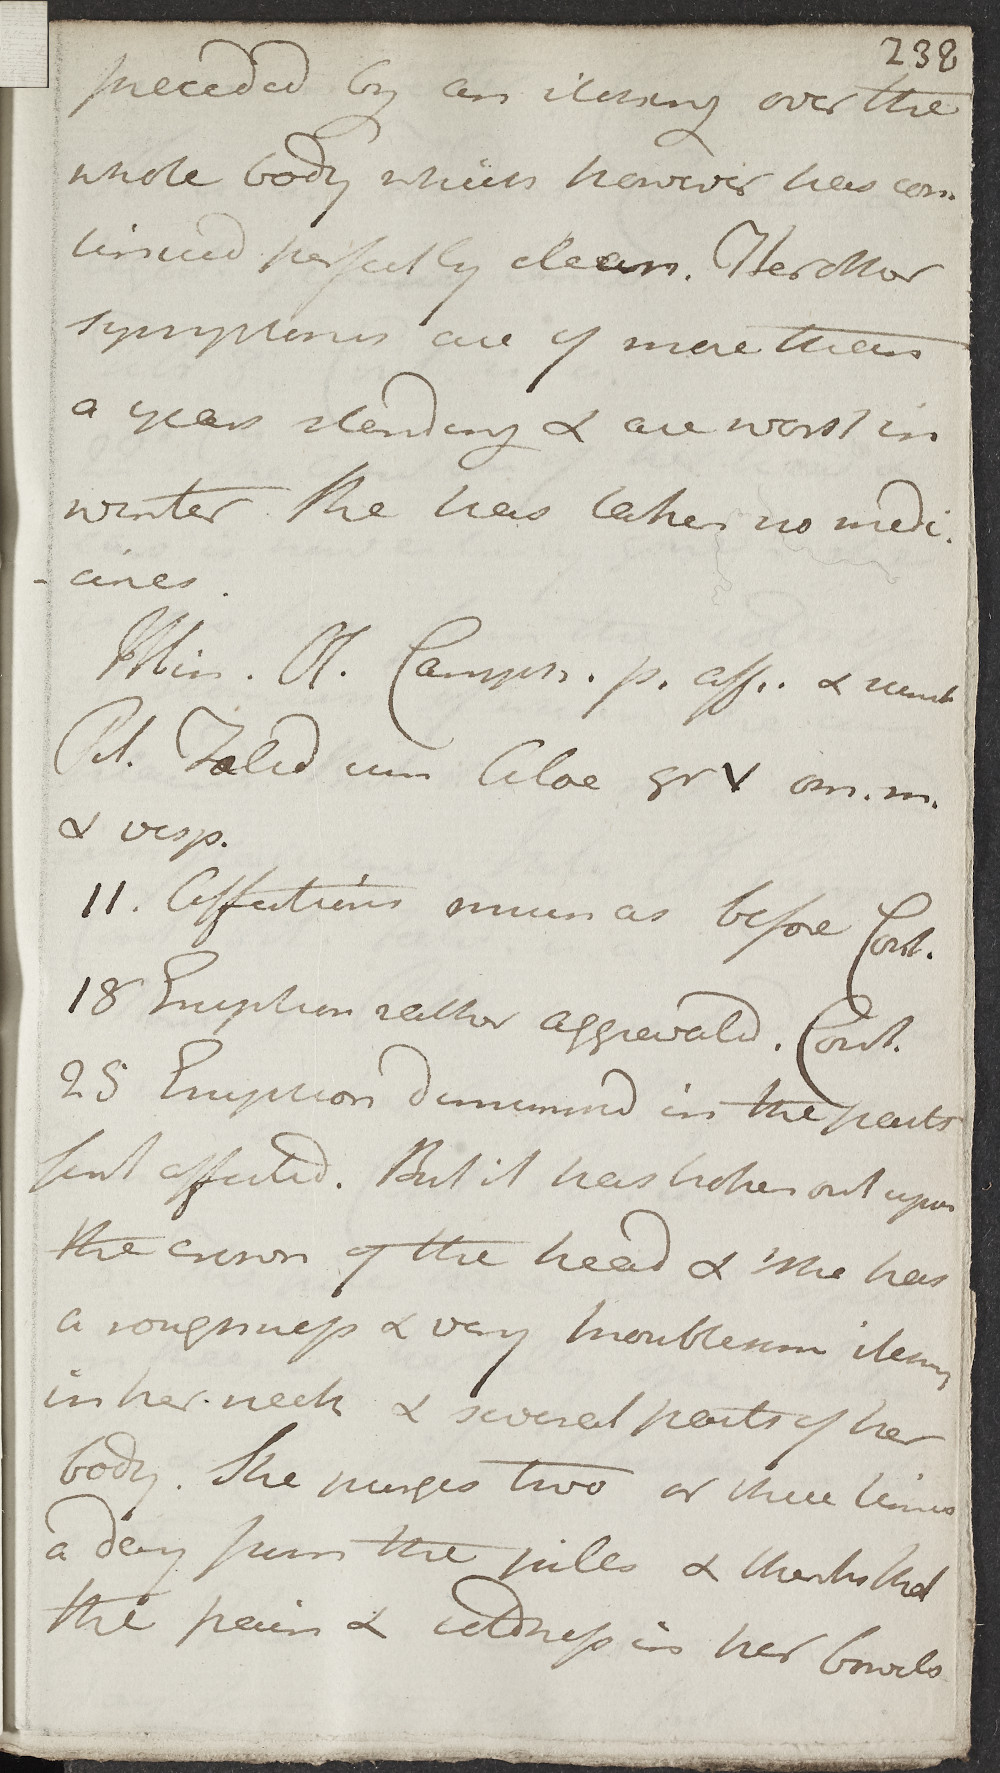 238
preceded by an itching over the
whole body which however has con-
tinued perfectly clean. Her other
symptoms are of more than
a years standing & are worst in
winter She has taken no medi-
-cines.
Illin. Ol. Camph. p. aff. & sumat
Pil. Fœtid cum Aloe gr V om. m.
& vesp.
11. Affections much as before Cont.
18 Eruption rather aggravated. Cont.
25 Eruption diminished in the parts
first affected. But it has broken out upon
the crown of the head & she has
a roughness & very troublesome itching
in her neck & several parts of her
body. She purges two or three times
a day from the pills & thinks that
the pain & coldness in her bowels